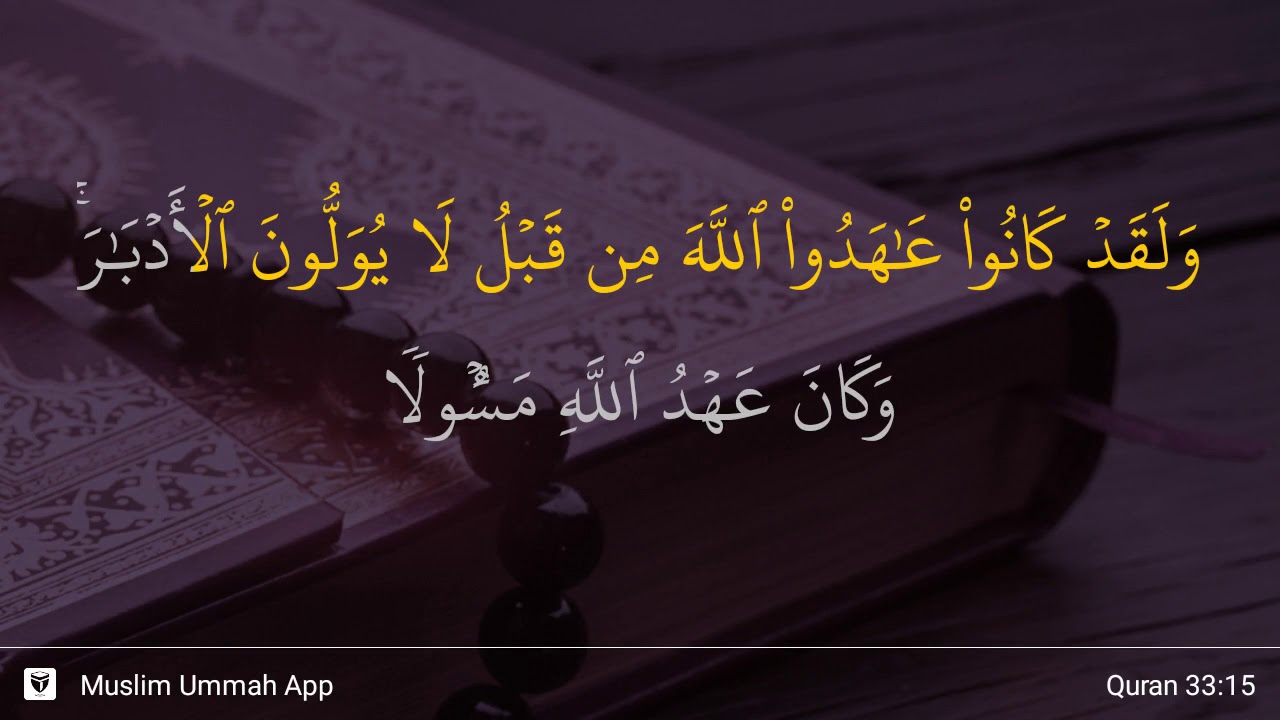 وَلَقَدۡ كَانُواْ عَٰهَدُواْ ٱللَّهَ مِن قَبۡلُ لَا يُوَلُّونَ ٱلۡأَدۡبَٰرَۚ
وَكَانَ عَهۡدُ ٱللَّهِ مَسۡـُٔولٗا
Muslim Ummah App
Quran 33:15